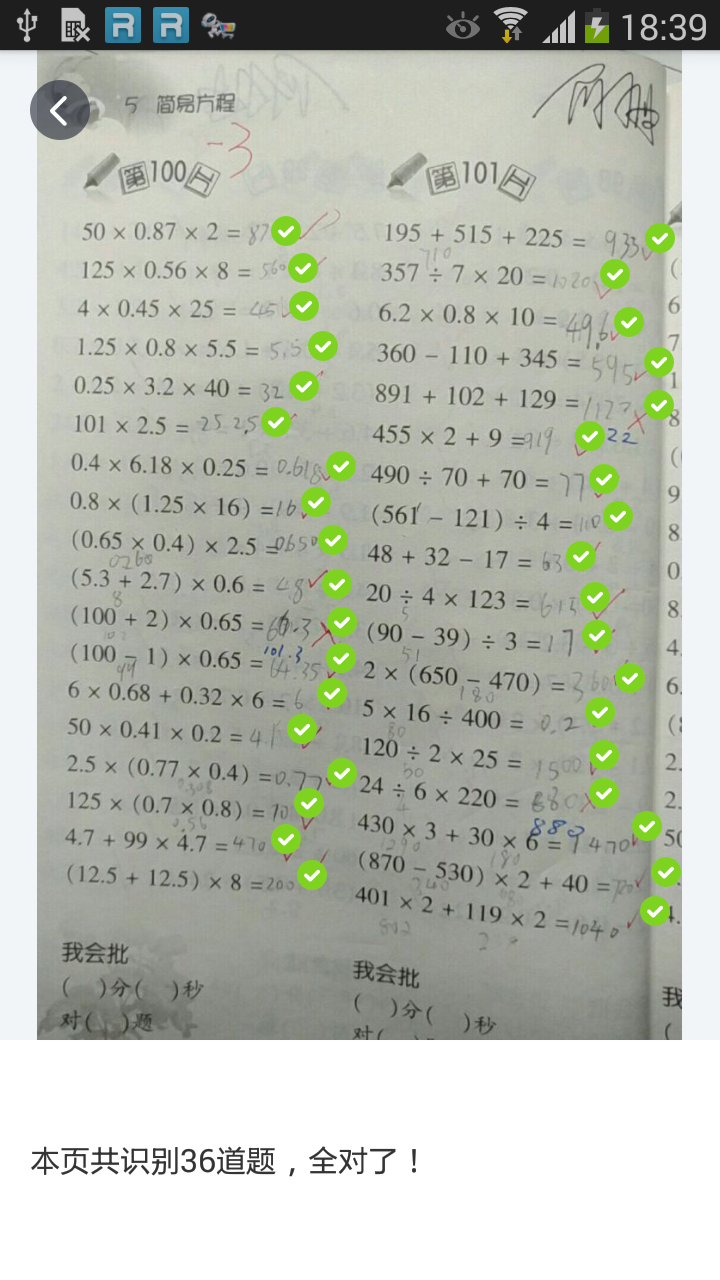 18:39
5 简易方程
-3
第100天
50 × 0.87 × 2 = 87
125 × 0.56 × 8 = 560
4 × 0.45 × 25 = 45
1.25 × 0.8 × 5.5 = 5.5
0.25 × 3.2 × 40 = 32
101 × 2.5 = 252.5
0.4 × 6.18 × 0.25 = 0.618
0.8 × (1.25 × 16) = 16
(0.65 × 0.4) × 2.5 = 0.650
0.260
(5.3 + 2.7) × 0.6 = 4.8
8
(100 + 2) × 0.65 = 66.3
102
(100 − 1) × 0.65 = 64.35
101.3
99
6 × 0.68 + 0.32 × 6 = 6
50 × 0.41 × 0.2 = 4.1
2.5 × (0.77 × 0.4) = 0.77
0.308
125 × (0.7 × 0.8) = 70
0.56
4.7 + 99 × 4.7 = 470
(12.5 + 12.5) × 8 = 200
我会批
( )分( )秒
对( )题
第101天
195 + 515 + 225 = 935
710
357 ÷ 7 × 20 = 1020
6.2 × 0.8 × 10 = 49.6
360 − 110 + 345 = 595
891 + 102 + 129 = 112
22
455 × 2 + 9 = 919
490 ÷ 70 + 70 = 77
(561 − 121) ÷ 4 = 110
48 + 32 − 17 = 63
20 ÷ 4 × 123 = 615
5
(90 − 39) ÷ 3 = 17
51
2 × (650 − 470) = 360
180
5 × 16 ÷ 400 = 0.2
80
120 ÷ 2 × 25 = 1500
60
24 ÷ 6 × 220 = 680
4
880
430 × 3 + 30 × 6 = 1470
1290 180
(870 − 530) × 2 + 40 = 720
340
401 × 2 + 119 × 2 = 1040
802
我会批
( )分( )秒
对(
本页共识别36道题，全对了！